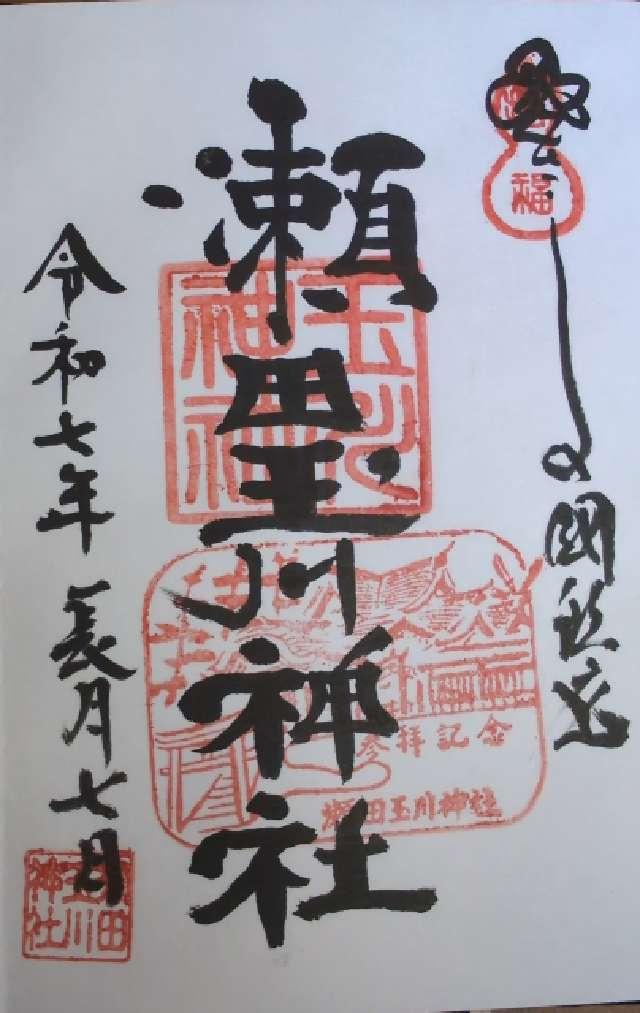 福
瀬田玉川神社
玉川
神社
参拝記念
瀬田玉川神社
令和七年 長月七日
瀬田
玉川
神社